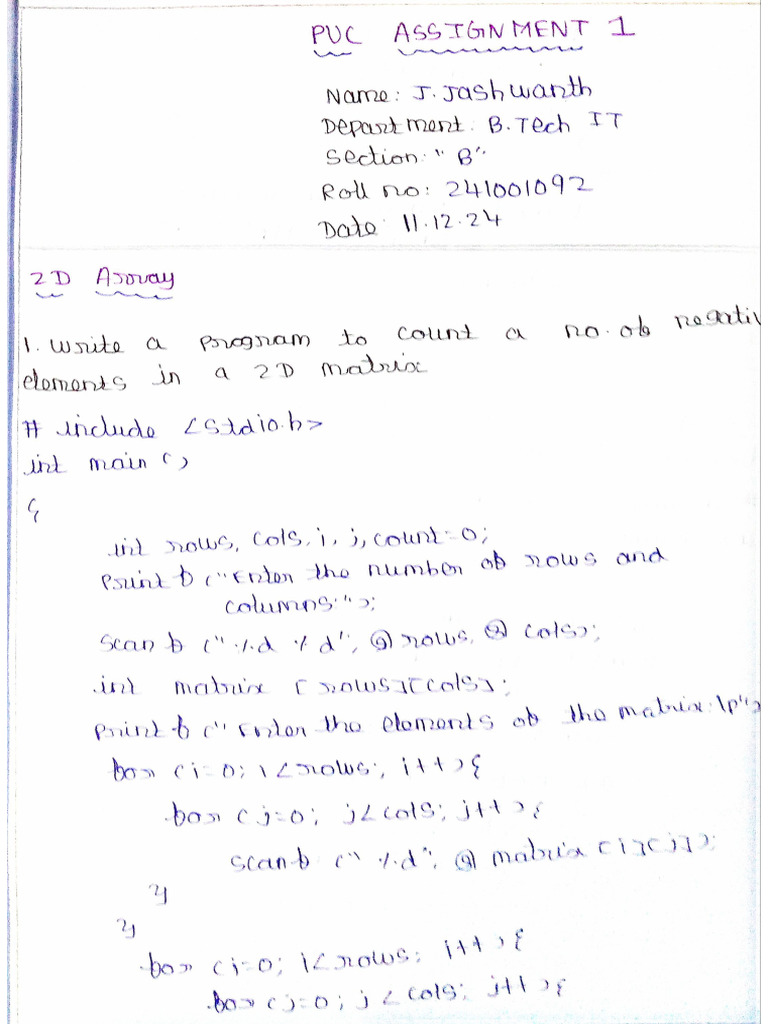 PUC ASSIGNMENT 1
Name: J. Jashwanth
Department: B.Tech IT
Section: "B"
Roll no: 241001092
Date: 11.12.24
2D Array
1. Write a program to count a no. of negativ
elements in a 2D matrix
# include <stdio.h>
int main ()
{
int rows, cols, i, j, count=0;
printf ("Enter the number of rows and
columns:");
scanf ("%d %d", @ rows, @ cols);
int matrix [rows][cols];
printf ("Enter the elements of the matrix: \p");
for (i=0; i<rows; i++){
for (j=0; j<cols; j++){
scanf ("%d", @ matrix [i][j]);
}
}
for (i=0; i<rows; i++){
for (j=0; j<cols; j++){